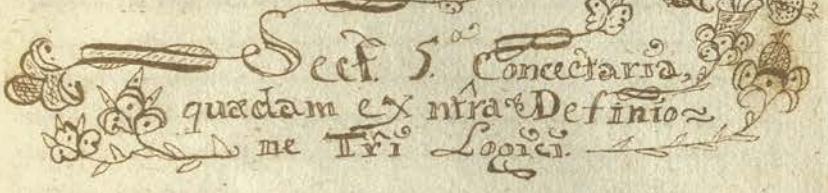 Sect. 5.a Concectaria,
quædam ex ntrâ Definitio~
ne Trī Logici.